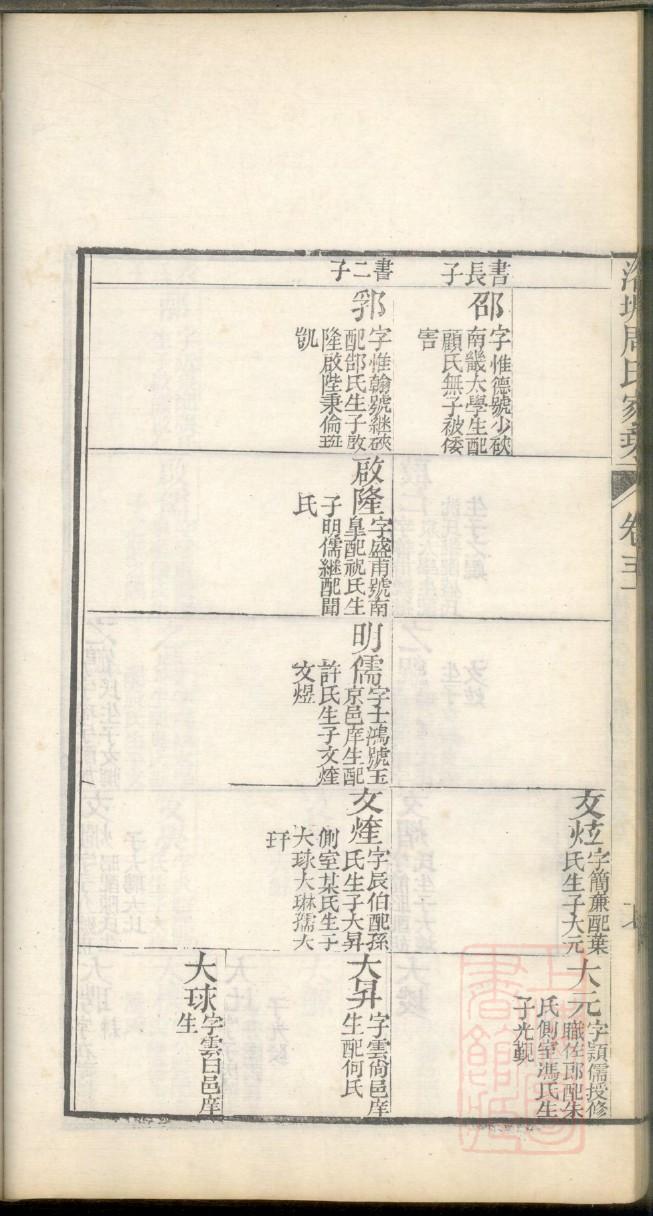 周氏家乘
卷五
書長子
邵
字惟德號少峽
南畿太學生配
顧氏無子被倭
害
書二子
郛
字惟翰號繼峽
配郜氏生子啟
隆啟陛秉倫
凱
啟隆
字盛甫號南
皐配祝氏生
子明儒繼配聞
氏
明儒
字士鴻號玉
京邑庠生配
許氏生子文煃
文煜
文炫
字簡亷配葉
氏生子大元
文煃
字辰伯配孫
氏生子大昇
側室某氏生子
大球大琳孺大
玕
大元
字頴儒授修
職佐郎配朱
氏側室馮氏生
子光覲
大昇
字雲尙邑庠
生配何氏
大球
字雲曰邑庠
生